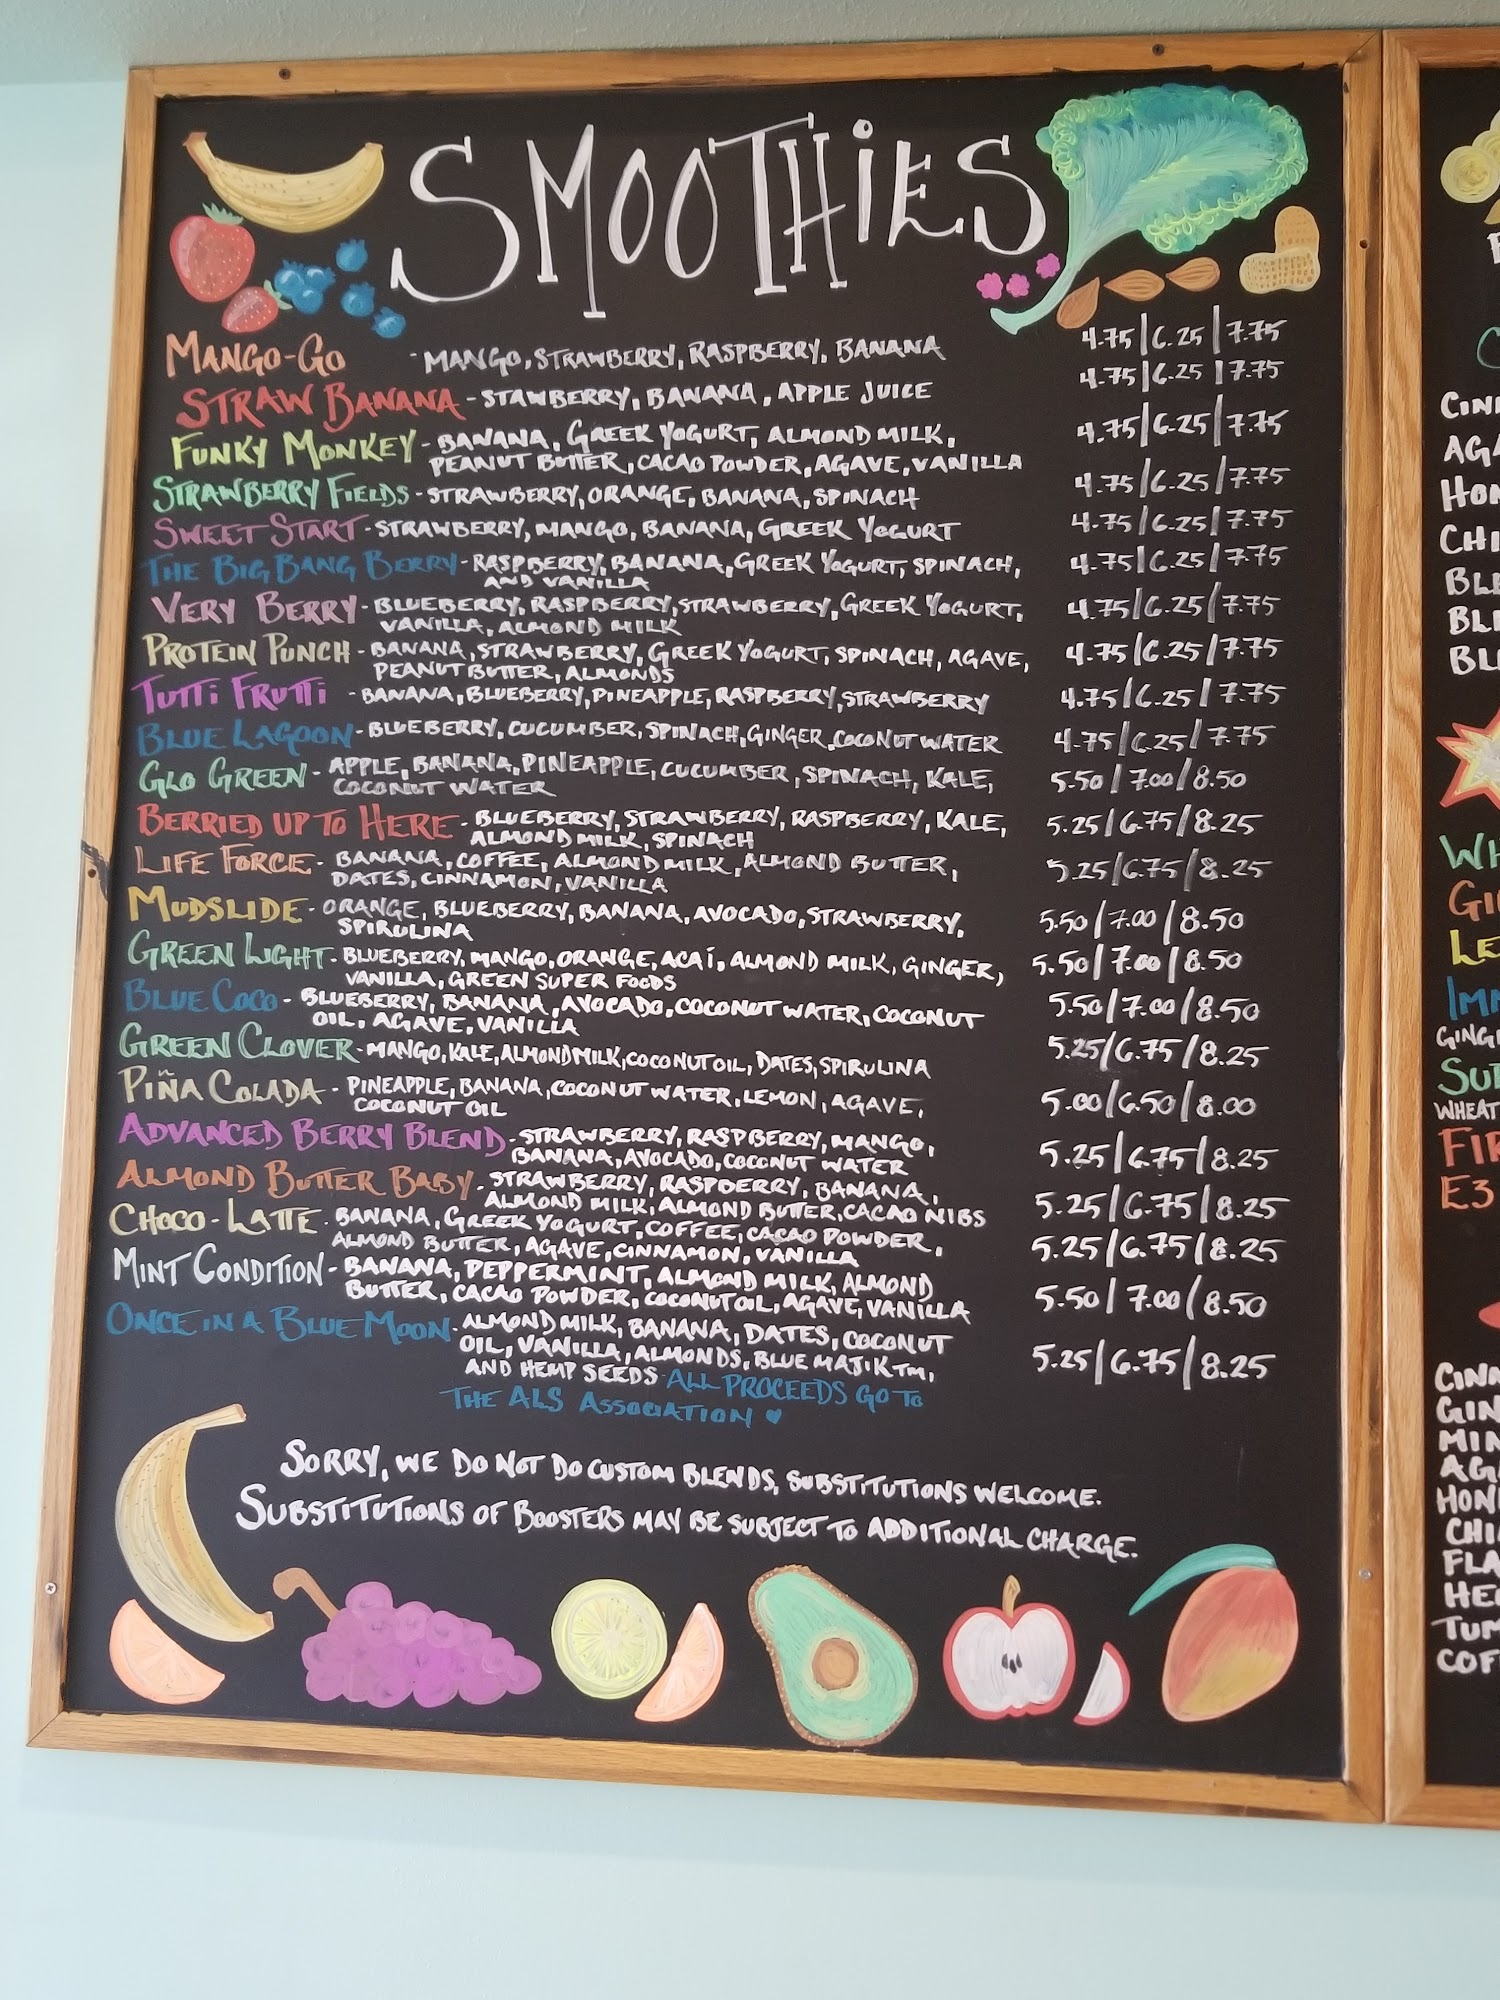 SMOOTHiES
MANGO-GO - MANGO, STRAWBERRY, RASPBERRY, BANANA 4.75|6.25|7.75
STRAW BANANA - STAWBERRY, BANANA, APPLE JUICE 4.75|6.25|7.75
FUNKY MONKEY - BANANA, GREEK YOGURT, ALMOND MILK, 4.75|6.25|7.75
PEANUT BUTTER, CACAO POWDER, AGAVE, VANILLA
STRAWBERRY FIELDS - STRAWBERRY, ORANGE, BANANA, SPINACH 4.75|6.25|7.75
SWEET START - STRAWBERRY, MANGO, BANANA, GREEK YOGURT 4.75|6.25|7.75
THE BIG BANG BERRY - RASPBERRY, BANANA, GREEK YOGURT, SPINACH, 4.75|6.25/7.75
AND VANILLA
VERY BERRY - BLUEBERRY, RASPBERRY, STRAWBERRY, GREEK YOGURT, 4.75|6.25/7.75
VANILLA, ALMOND MILK
PROTEIN PUNCH - BANANA, STRAWBERRY, GREEK YOGURT, SPINACH, AGAVE, 4.75/6.25/7.75
PEANUT BUTTER, ALMONDS
TUTTi FRUTTi - BANANA, BLUEBERRY, PINEAPPLE, RASPBERRY, STRAWBERRY 4.75/6.25/7.75
BLUE LAGOON - BLUEBERRY, CUCUMBER, SPINACH, GINGER, COCONUT WATER 4.75/6.25/7.75
GLO GREEN - APPLE, BANANA, PINEAPPLE, CUCUMBER, SPINACH, KALE, 5.50/7.00/8.50
COCONUT WATER
BERRIED UP TO HERE - BLUEBERRY, STRAWBERRY, RASPBERRY, KALE, 5.25/6.75/8.25
ALMOND MILK, SPINACH
LIFE FORCE - BANANA, COFFEE, ALMOND MILK, ALMOND BUTTER, 5.25/6.75/8.25
DATES, CINNAMON, VANILLA
MUDSLIDE - ORANGE, BLUEBERRY, BANANA, AVOCADO, STRAWBERRY, 5.50/7.00/8.50
SPIRULINA
GREEN LIGHT - BLUEBERRY, MANGO, ORANGE, ACAÍ, ALMOND MILK, GINGER, 5.50/7.00/8.50
VANILLA, GREEN SUPER FOODS
BLUE COCO - BLUEBERRY, BANANA, AVOCADO, COCONUT WATER, COCONUT 5.50/7.00/8.50
OIL, AGAVE, VANILLA
GREEN CLOVER - MANGO, KALE, ALMOND MILK, COCONUT OIL, DATES, SPIRULINA 5.25/6.75/8.25
PIÑA COLADA - PINEAPPLE, BANANA, COCONUT WATER, LEMON, AGAVE, 5.00/6.50/8.00
COCONUT OIL
ADVANCED BERRY BLEND - STRAWBERRY, RASPBERRY, MANGO, 5.25/6.75/8.25
BANANA, AVOCADO, COCONUT WATER
ALMOND BUTTER BABY - STRAWBERRY, RASPBERRY, BANANA, 5.25/6.75/8.25
ALMOND MILK, ALMOND BUTTER, CACAO NIBS
CHOCO-LATTE - BANANA, GREEK YOGURT, COFFEE, CACAO POWDER, 5.25/6.75/8.25
ALMOND BUTTER, AGAVE, CINNAMON, VANILLA
MINT CONDITION - BANANA, PEPPERMINT, ALMOND MILK, ALMOND 5.50/7.00/8.50
BUTTER, CACAO POWDER, COCONUT OIL, AGAVE, VANILLA
ONCE IN A BLUE MOON - ALMOND MILK, BANANA, DATES, COCONUT 5.25/6.75/8.25
OIL, VANILLA, ALMONDS, BLUE MAJIK TM,
AND HEMP SEEDS ALL PROCEEDS GO TO
THE ALS ASSOCIATION ♥
SORRY, WE DO NOT DO CUSTOM BLENDS, SUBSTITUTIONS WELCOME.
SUBSTITUTIONS OF BOOSTERS MAY BE SUBJECT TO ADDITIONAL CHARGE.